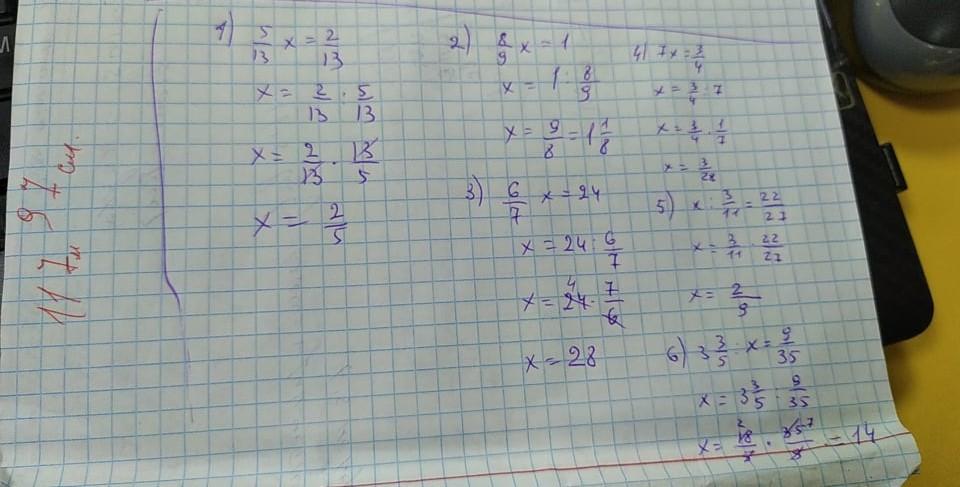 1) 5/13 x = 2/13
x = 2/13 : 5/13
x = 2/13 · 13/5
x = 2/5
2) 8/9 x = 1
x = 1 : 8/9
x = 9/8 = 1 1/8
3) 6/7 x = 24
x = 24 : 6/7
x = 24 4 · 7/6
x = 28
4) 7x = 3/4
x = 3/4 : 7
x = 3/4 · 1/7
x = 3/28
5) x : 3/11 = 22/27
x = 3/11 · 22/27
x = 2/9
6) 3 3/5 : x = 9/35
x = 3 3/5 : 9/35
x = 18 2/5 · 35 7/9 = 14